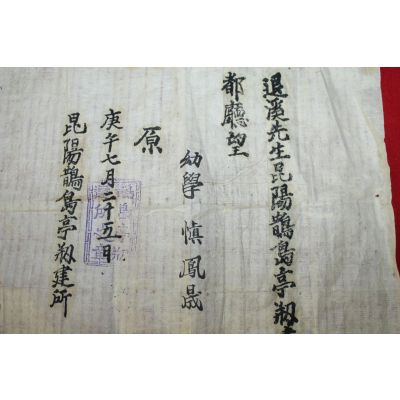 退溪先生昆陽鵲島亭刱
都廳望
幼學 愼鳳晟
原
庚午七月二十五日
昆陽鵲島亭刱建所